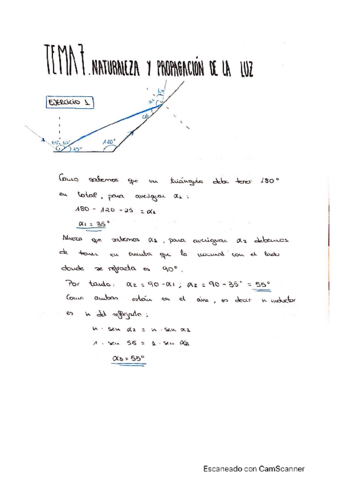 TEMA 7. NATURALEZA Y PROPAGACIÓN DE LA LUZ
EJERCICIO 1
25° 120°
Como sabemos que un triángulo debe tener 180°
en total, para averiguar α₁:
180 - 120 - 25 = α₁
α₁ = 35°
Ahora que sabemos α₁, para averiguar α₂ debemos
de tener en cuenta que la normal con el lado
donde se refracta es 90°.
Por tanto: α₂ = 90 - α₁; α₂ = 90 - 35° = 55°
Como ambos están en el aire, es decir n inductor
es n del reflejado:
n · sen α₂ = n · sen α₃
1 · sen 55 = 1 · sen α₃
α₃ = 55°
Escaneado con CamScanner